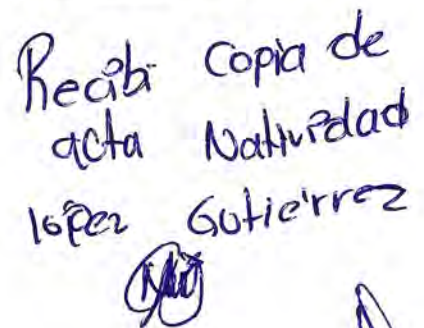 Recibi Copia de
acta Natividad
lópez Gutiérrez